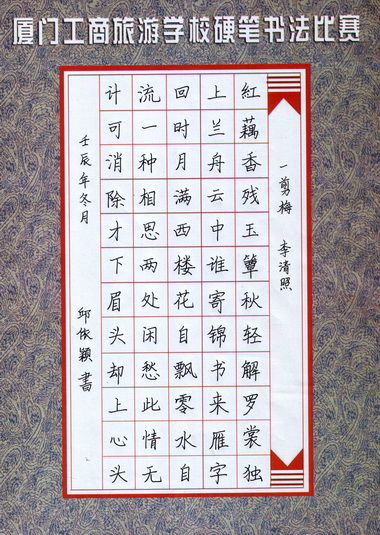 厦门工商旅游学校硬笔书法比赛
一剪梅 李清照
紅藕香残玉簟秋轻解罗裳独
上兰舟云中谁寄锦书来雁字
回时月满西楼花自飘零水自
流一种相思两处闲愁此情无
计可消除才下眉头却上心头
壬辰年冬月 邱依颖書